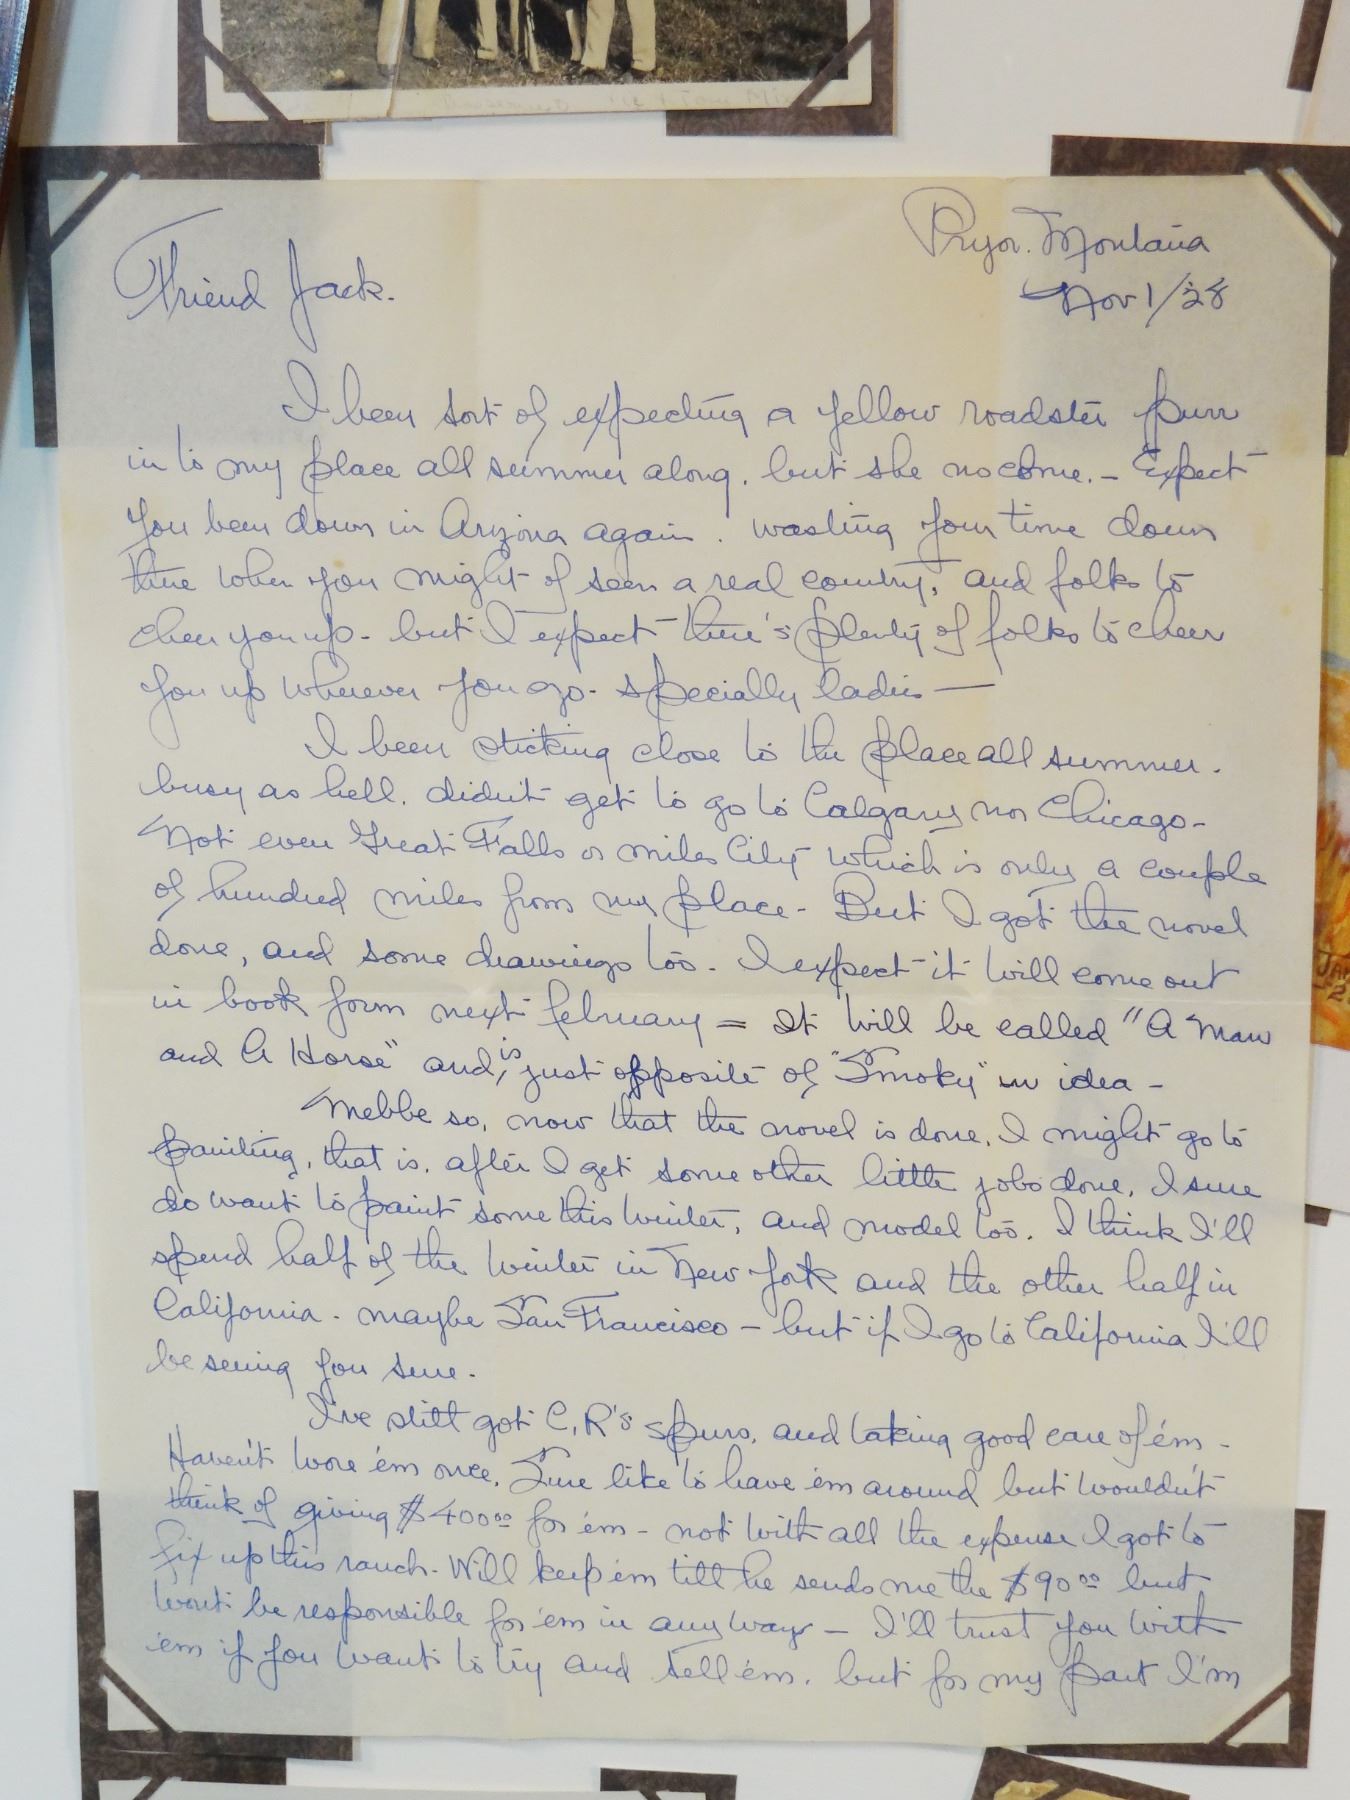 Pryor. Montana
Nov 1/28
Friend Jack.
I been sort of expecting a yellow roadster purr
in to my place all summer along. but she no come. - Expect
you been down in Arizona again. wasting your time down
there when you might of seen a real country, and folks to
cheer you up - but I expect there's plenty of folks to cheer
you up wherever you go - specially ladies —
I been sticking close to the place all summer.
busy as hell. didn't get to go to Calgary nor Chicago -
Not even Great Falls or miles City which is only a couple
of hundred miles from my place - But I got the novel
done, and some drawings too - I expect it will come out
in book form next february = It will be called "A Man
and A Horse" and is just opposite of "Smoky" in idea -
Mebbe so, now that the novel is done, I might go to
painting, that is, after I get some other little jobs done, I sure
do want to paint some this winter, and model too. I think I'll
spend half of the winter in New York and the other half in
California - maybe San Francisco - but if I go to California I'll
be seeing you sure.
I've still got C.R's spurs, and taking good care of 'em -
Haven't wore 'em once. Sure like to have 'em around but wouldn't
think of giving $400.00 for 'em - not with all the expense I got to
fix up this ranch - Will keep 'em till he sends me the $90.00 but
won't be responsible for 'em in any way - I'll trust you with
'em if you want to try and sell 'em, but for my part I'm
JA
2